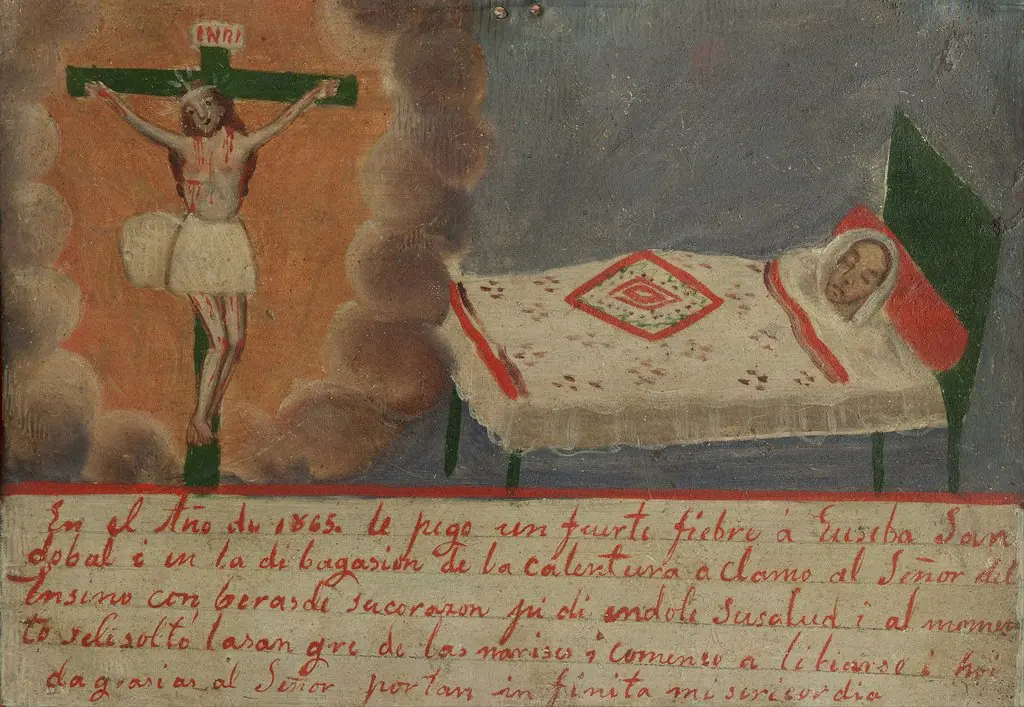 INRI
En el Año de 1865. le pego un fuerte fiebre á Euseba San
dobal i en la di bagasion de la calentura a clamo al Señor del
Ensino con berasde sucorazon pi di endole susalud i al momen
to selesoltó lasan gre de las narises i comenso a libiarse i hoi
da grasias al Señor portan in finita mi sericordia